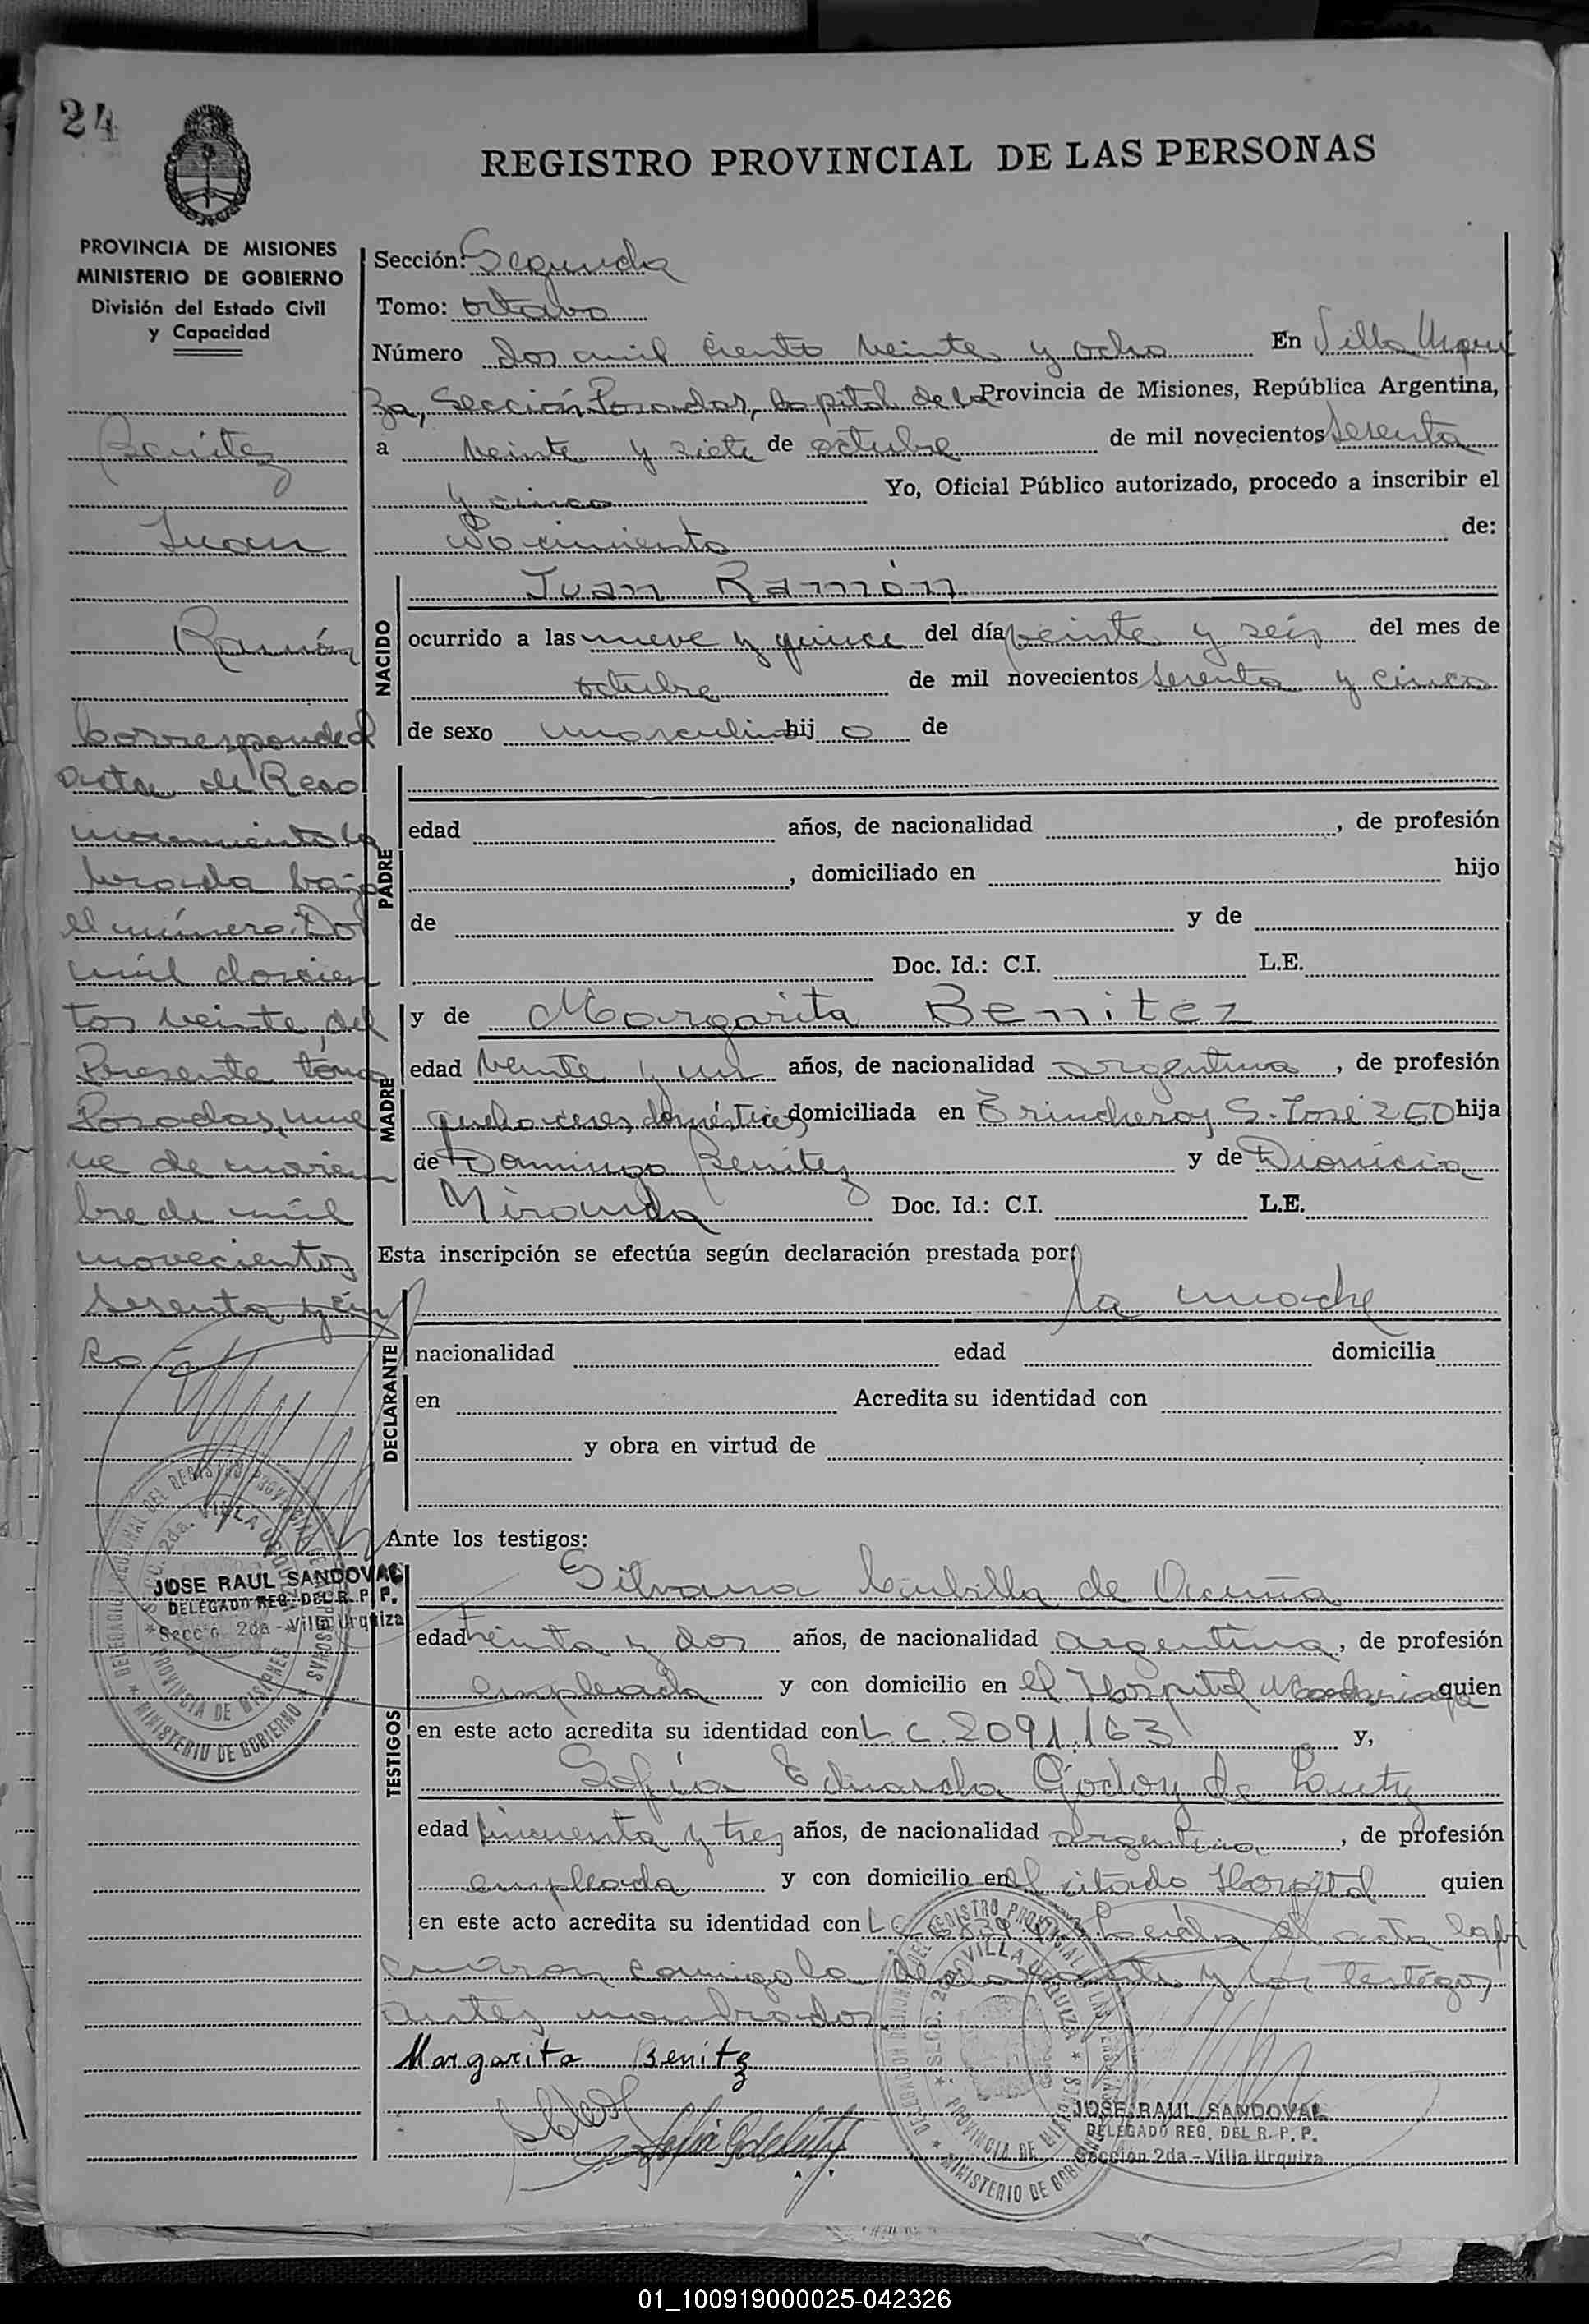 24
REGISTRO PROVINCIAL DE LAS PERSONAS
PROVINCIA DE MISIONES
MINISTERIO DE GOBIERNO
División del Estado Civil
y Capacidad
Benítez
Juan
Ramón
Corresponde al
acta de Reco
nocimiento la
brada bajo
el número Dos
mil doscien
tos veinte, del
Presente tomo
Posadas, nue
ve de noviem
bre de mil
novecientos
sesenta y cin
co
JOSE RAUL SANDOVAL
DELEGADO REG. DEL R. P. P.
Sección 2da - Villa Urquiza
Sección: Segunda
Tomo: octavo
Número dos mil ciento veinte y ocho En Villa Urqui
za, Sección Posadas, Capital de la Provincia de Misiones, República Argentina,
a veinte y siete de octubre de mil novecientos sesenta
y cinco Yo, Oficial Público autorizado, procedo a inscribir el
Nacimiento de:
NACIDO
Juan Ramón
ocurrido a las nueve y quince del día veinte y seis del mes de
octubre de mil novecientos sesenta y cinco
de sexo masculino hij o de
PADRE
edad años, de nacionalidad , de profesión
, domiciliado en hijo
de y de
Doc. Id.: C.I. L.E.
MADRE
y de Margarita Benitez
edad veinte y un años, de nacionalidad argentina, de profesión
quehaceres domésticos domiciliada en Trincheras S. José 250 hija
de Domingo Benítez y de Dionicia
Miranda Doc. Id.: C.I. L.E.
Esta inscripción se efectúa según declaración prestada por:
DECLARANTE
la madre
nacionalidad edad domicilia
en Acredita su identidad con
y obra en virtud de
Ante los testigos:
TESTIGOS
Silvana Cubilla de Acuña
edad treinta y dos años, de nacionalidad argentina, de profesión
empleada y con domicilio en el Hospital Madariaga quien
en este acto acredita su identidad con L.C. 2091.163 y,
Sofía Eduarda Godoy de
edad cincuenta y tres años, de nacionalidad argentina, de profesión
empleada y con domicilio en el citado Hospital quien
en este acto acredita su identidad con L.C. Leída el acta la fir
maron conmigo la declarante y los testigos
antes nombrados
Margarita Benitez
JOSE RAUL SANDOVAL
DELEGADO REG. DEL R. P. P.
Sección 2da - Villa Urquiza
01_100919000025-042326